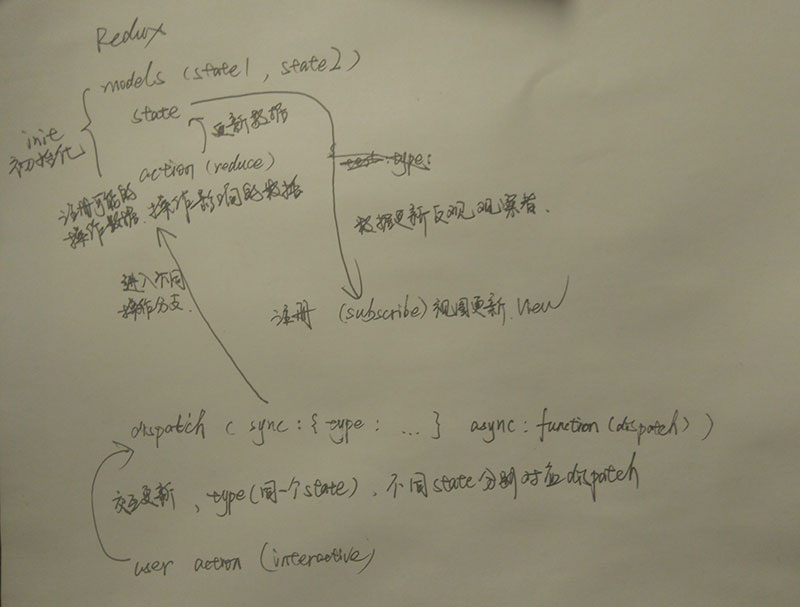 Redux
models (state1, state2)
state
更新数据
init
初始化
action (reduce)
type:
注册可能的
操作数据. 操作影响的数据
数据更新反观观察者.
进入不同
操作分支.
注册 (subscribe) 视图更新. view
dispatch ( sync : { type : ... } async : function (dispatch) )
交互更新, type (同一个state), 不同state分别对应dispatch
user action (interactive)